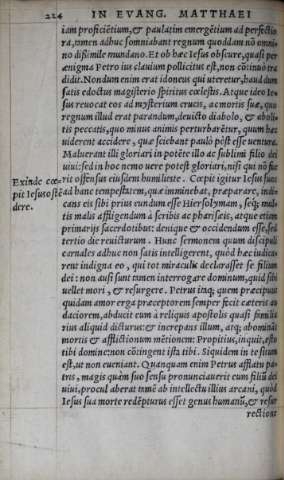 224 IN EVANG. MATTHAEI
iam proficiẽtium, & paulatim emergẽtium ad perfectio
ra, tamen adhuc somniabant regnum quoddam nõ omni-
no dissimile mundano. Et ob hæc Iesus obscure, quasi per
ænigma Petro ius clauium pollicitus est, non cõtinuò tra
didit. Nondum enim erat idoneus qui vteretur, haud dum
satis edoctus magisterio spiritus cœlestis. Atque ideo Ie-
sus reuocat eos ad mysterium crucis, ac mortis suæ, quo
regnum illud erat parandum, deuicto diabolo, & aboli-
tis peccatis, quo minus animis perturbarẽtur, quum hæc
viderent accidere, quæ sciebant paulò pòst esse uentura.
Maluerant illi gloriari in potẽte illo ac sublimi filio dei
viui: sed in hoc nemo vere potest gloriari, nisi qui nõ fue
Exinde cœ- rit offensus eiusdem humilitate. Cœpit igitur Iesus suos
pit Iesus ostẽ ad hanc tempestatem, quæ imminebat, præparare, indi-
dere. cans eis sibi prius eundum esse Hierosolymam, seq; mul-
tis malis affligendum à scribis ac phariseis, atque etiam
primarijs sacerdotibus: denique & occidendum esse, sed
tertio die reuicturum. Hunc sermonem quum discipuli
carnales adhuc non satis intelligerent, quòd hæc iudica-
rent indigna eo, qui tot miraculis declarasset se filium
dei: non ausi sunt tamen interrogare dominum, quid sibi
uellet mori, & resurgere. Petrus itaq; quem præcipuus
quidam amor erga præceptorem semper fecit cæteris au
daciorem, abducit eum à reliquis apostolis quasi familia
rius aliquid dicturus: & increpans illum, atq; abominãs
mortis & afflictionum mẽtionem: Propitius, inquit, esto
tibi domine: non cõtingent ista tibi. Siquidem in te situm
est, ut non eueniant. Quanquam enim Petrus afflatu pa-
tris, magis quàm suo sensu pronunciauerit eum filiũ dei
uiui, procul aberat tamẽ ab intellectu illius arcani, quòd
Iesus sua morte redẽpturus esset genus humanũ, & resur
rectione